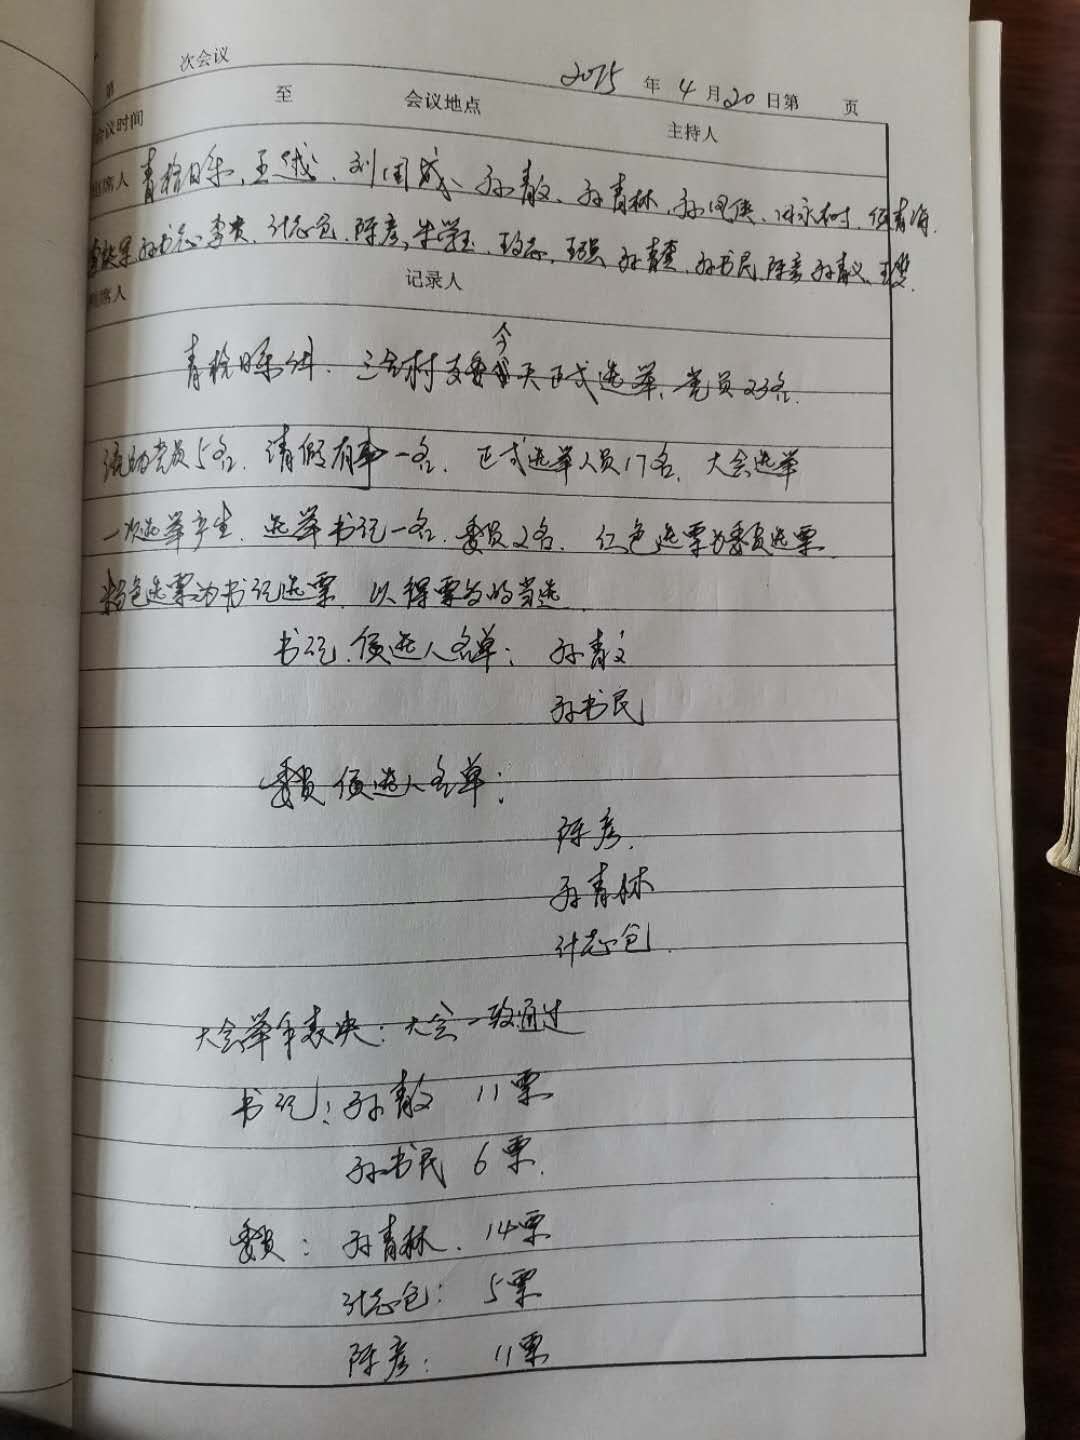 第 次会议 2015 年 4 月 20 日第 页
会议时间 至 会议地点 主持人
出席人 刘国成、孙青文、孙青林、孙凤侠、
孙书志、李贵、计志仓、陈彦、 孙书民、陈彦、孙青义、
席人 记录人
今
村支委 天正式选举，党员23名．
流动党员5名．请假有事一名．正式选举人员17名．大会选举
一次选举产生．选举书记一名．委员2名．红色选票为委员选票
粉色选票为书记选票．以得票多的当选．
书记．侯选人名单： 孙青文
孙书民
委员侯选人名单：
陈彦．
孙青林
计志仓．
大会举手表决：大会一致通过
书记：孙青文 11票
孙书民 6票．
委员：孙青林． 14票
计志仓： 5票
陈彦： 11票